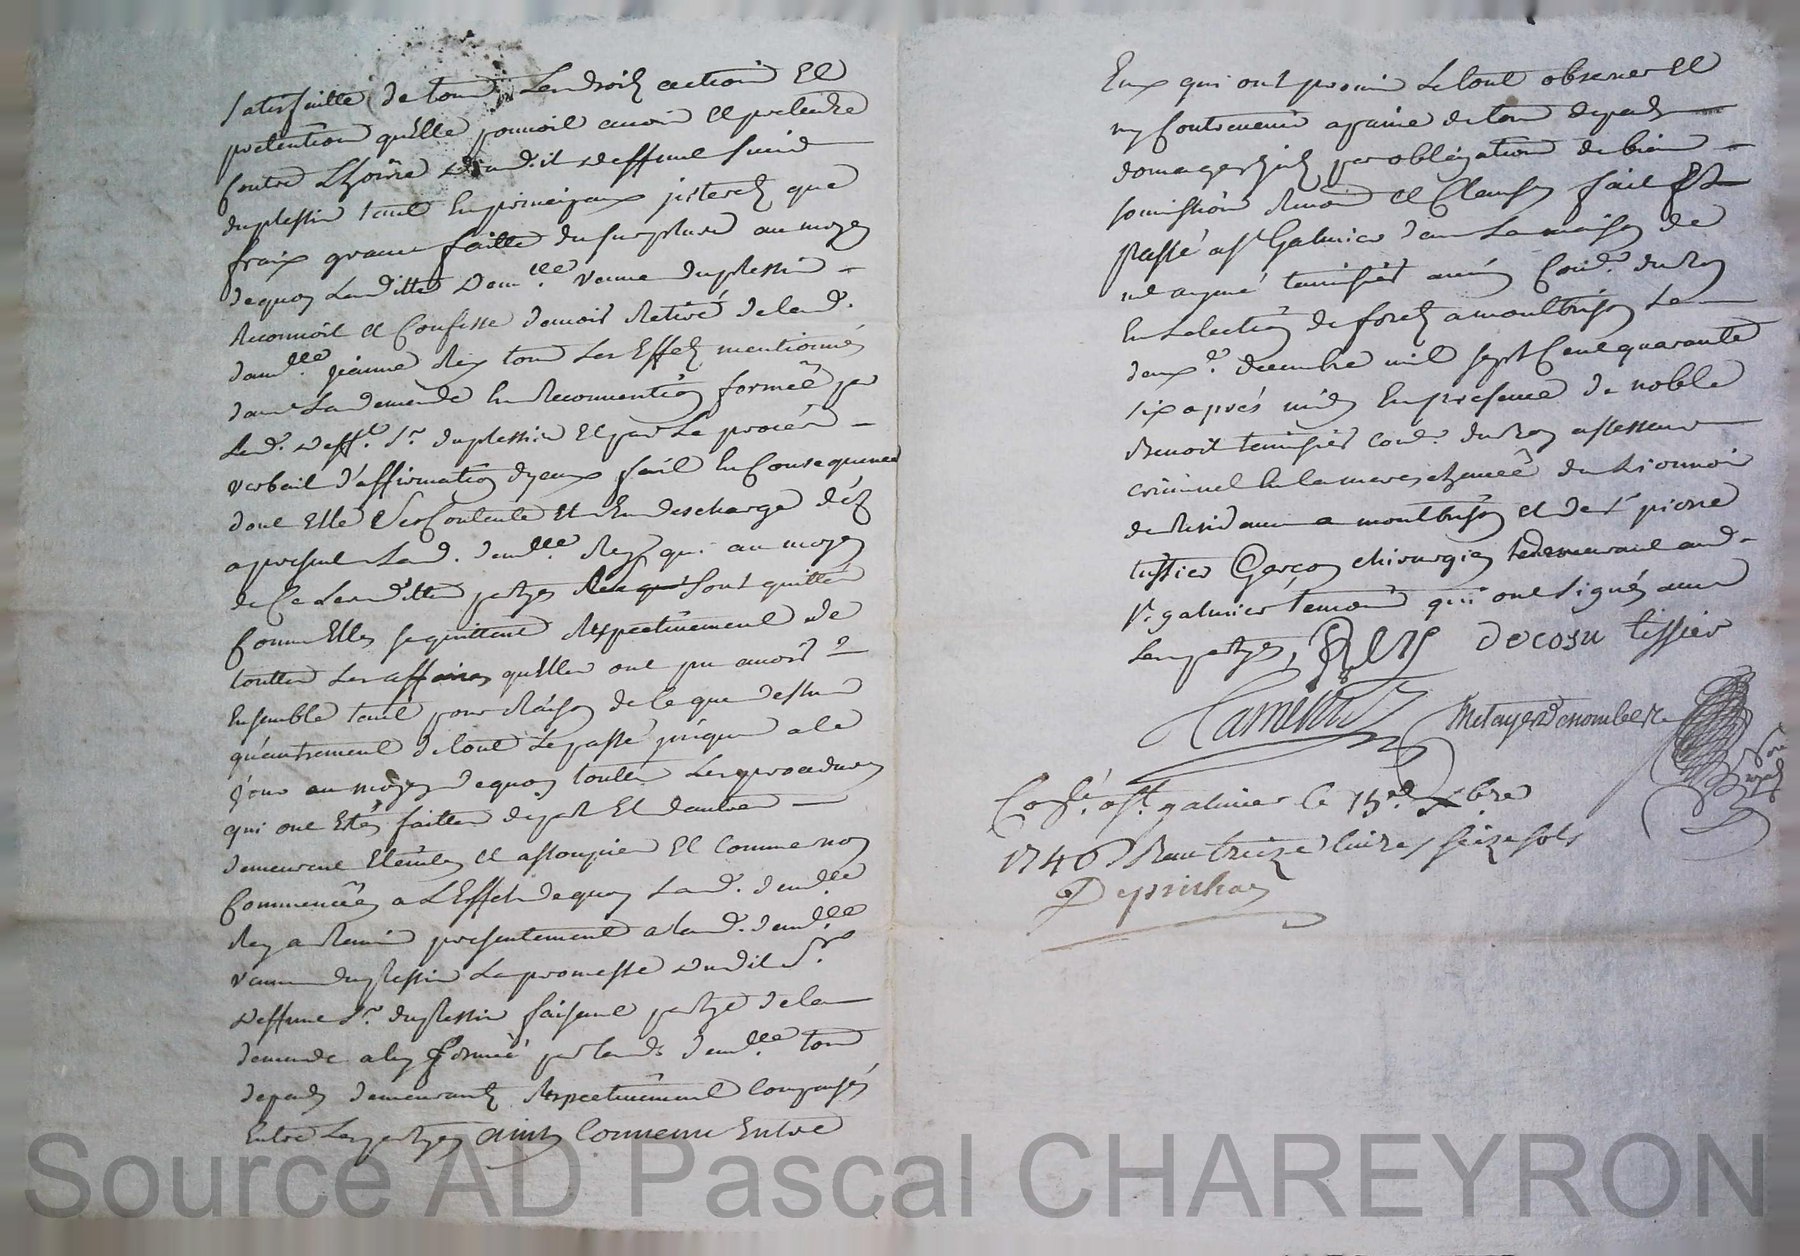 satisfaitte de tous les droits action Et
pretention qu'elle pouvoit avoir Et pretendre
Contre L'hoirie dudit deffunt sieur
duplessis tant En principaux jnterets que
fraix graces faitte du surplus au moyen
dequoy laditte dem.lle veuve duplessis
Reconnoit et Confesse d'avoir Retiré de lad.
dam.lle jeanne Rey tous les Effets mentionnés
dans La demande En Reconvention formeé par
Led. deff.t S.r duplessis Et par Le procés
verbail d'affirmation d'yceux fait En Consequence
dont Elle s'est Contente Et En descharge déz
apresent Lad. dem.lle Rey qui au moyen
de Ce Lesdittes partyes sont quittes
Comme Elles se quittent Respectivement de
touttes Les affaires qu'elles ont pu avoir
Ensemble tant pour Raison de Ce que dessus
qu'autrement de tout Le passé jusques a Ce
jour au moyen dequoy touttes Les procedures
qui ont Etés faittes de part Et d'autre
demeurent Eteintes et assoupies Et Comme non
Commencées a L'Effet dequoy Lad. dem.lle
Rey a Remis presentement a lad. dem.lle
veuve duplessis La promesse dudit
deffunt S.r duplessis faisant partye de la
demande a luy formeé par lad. dem.lle tous
depens demeurants Respectivement Compensés
Entre Les partyes ainsy Convenu Entre
Eux qui ont promis Le tout observer Et
ny Contrevenir a paine de tous depens
domages par obligation de biens
soumission Renon et Clauses fait Et
Passé a S.t Galmier dans La maison de
me aymé tamisier Con.er du Roy
En L'election de forets a montbrison Le
deux.e decembre mil sept Cent quarante
six aprés midy En presence de noble
Benoit tamisier con.er du Roy assesseur
criminel En la mareschauceé du Lionnois
de Residance a montbrison et de S.r pierre
tissier Garçon chirurgien demeurant aud.
S.t galmier temoins qui ont signés avec
Les partyes, Rey decosu tissier
Tamisier
Cos.é a S.t galmier le 15.e Xbre
1746 Reçu treize livres seize sols
Source AD Pascal CHAREYRON